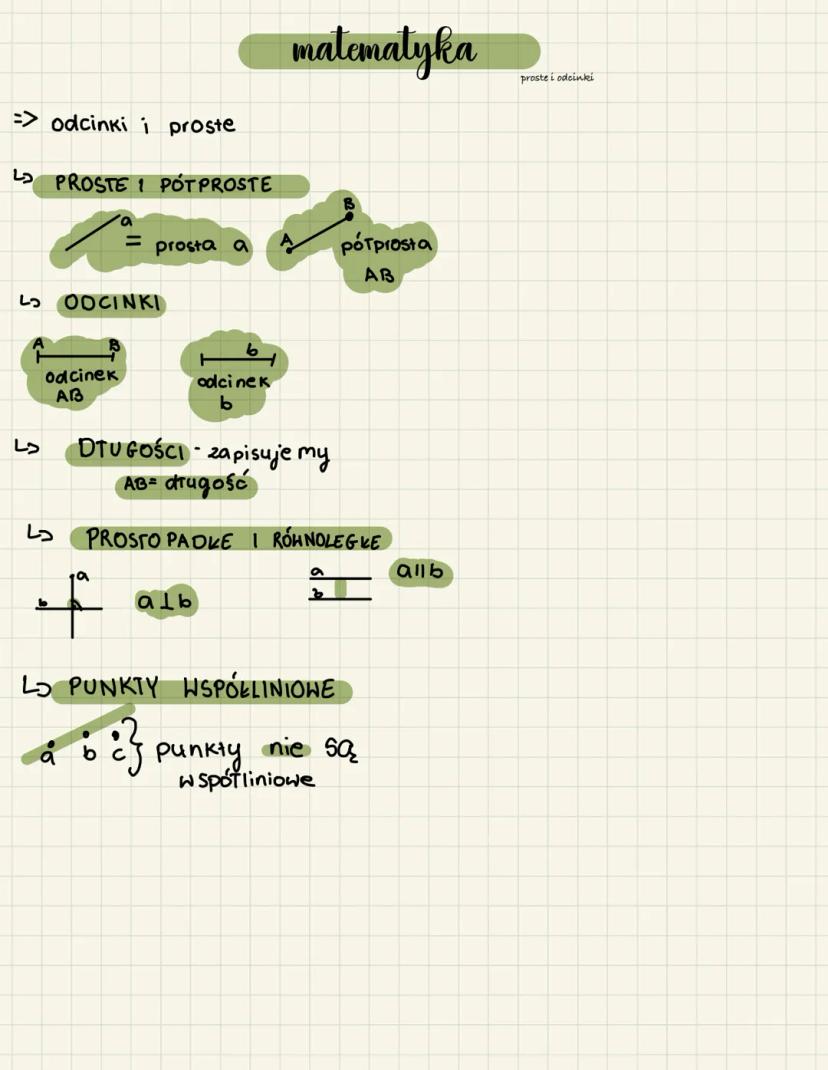 matematyka
proste i odcinki
=> odcinki i proste
↳ PROSTE I PÓŁPROSTE
a = prosta a
A B półprosta
AB
↳ ODCINKI
A B
odcinek
AB
b
odcinek
b
↳ DŁUGOŚCI - zapisujemy
AB= długość
↳ PROSTOPADŁE I RÓWNOLEGŁE
a
b
a⊥b
a
b
a||b
↳ PUNKTY WSPÓŁLINIOWE
a b c } punkty nie są
współliniowe